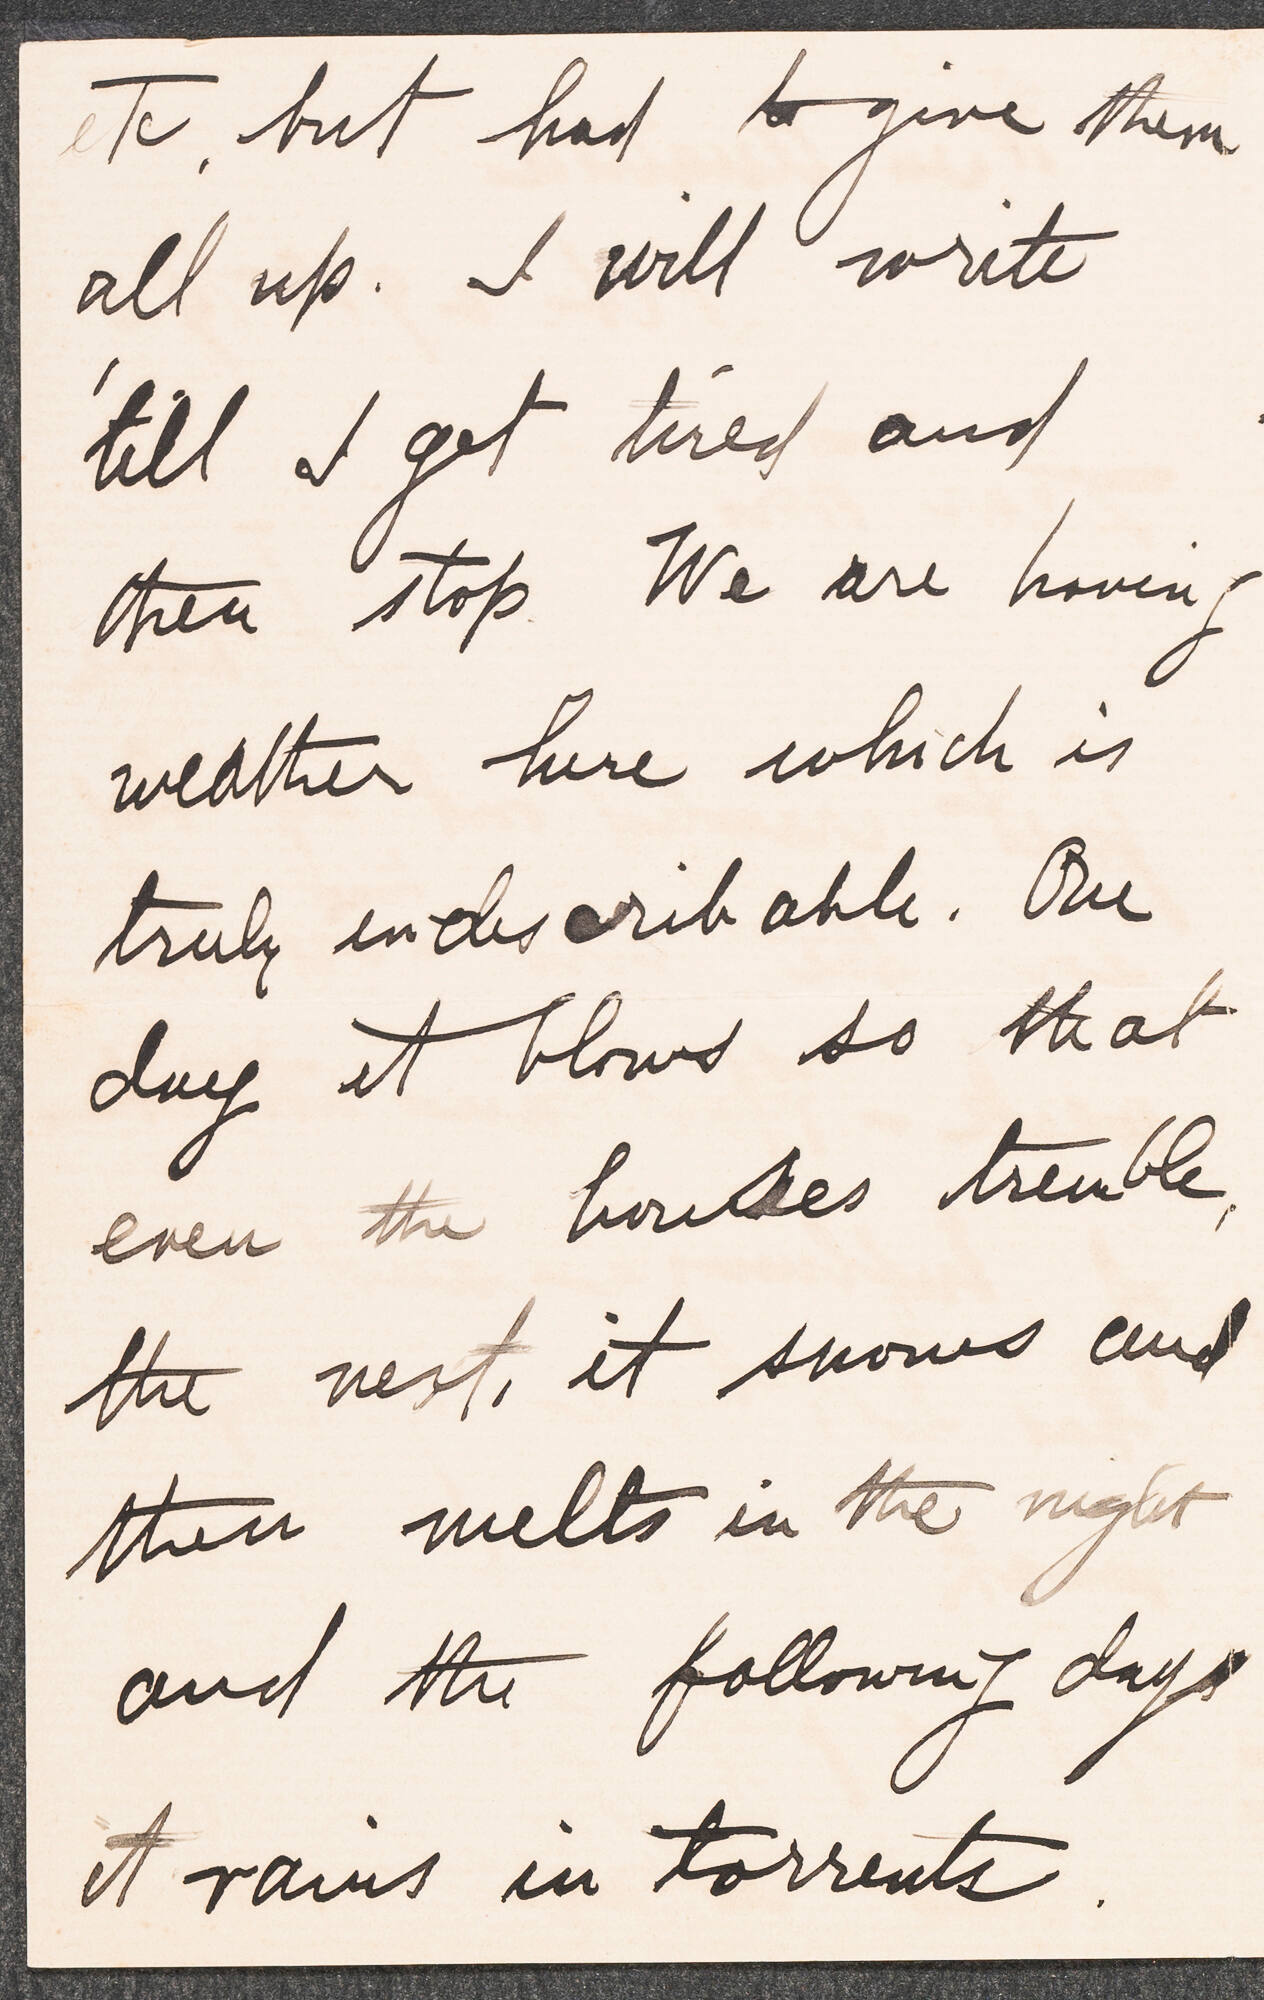 etc, but had to give them
all up. I will write
'till I get tired and
then stop. We are having
weather here which is
truly indescribable. One
day it blows so that
even the houses tremble,
the next, it snows and
then melts in the night
and the following days
it rains in torrents.